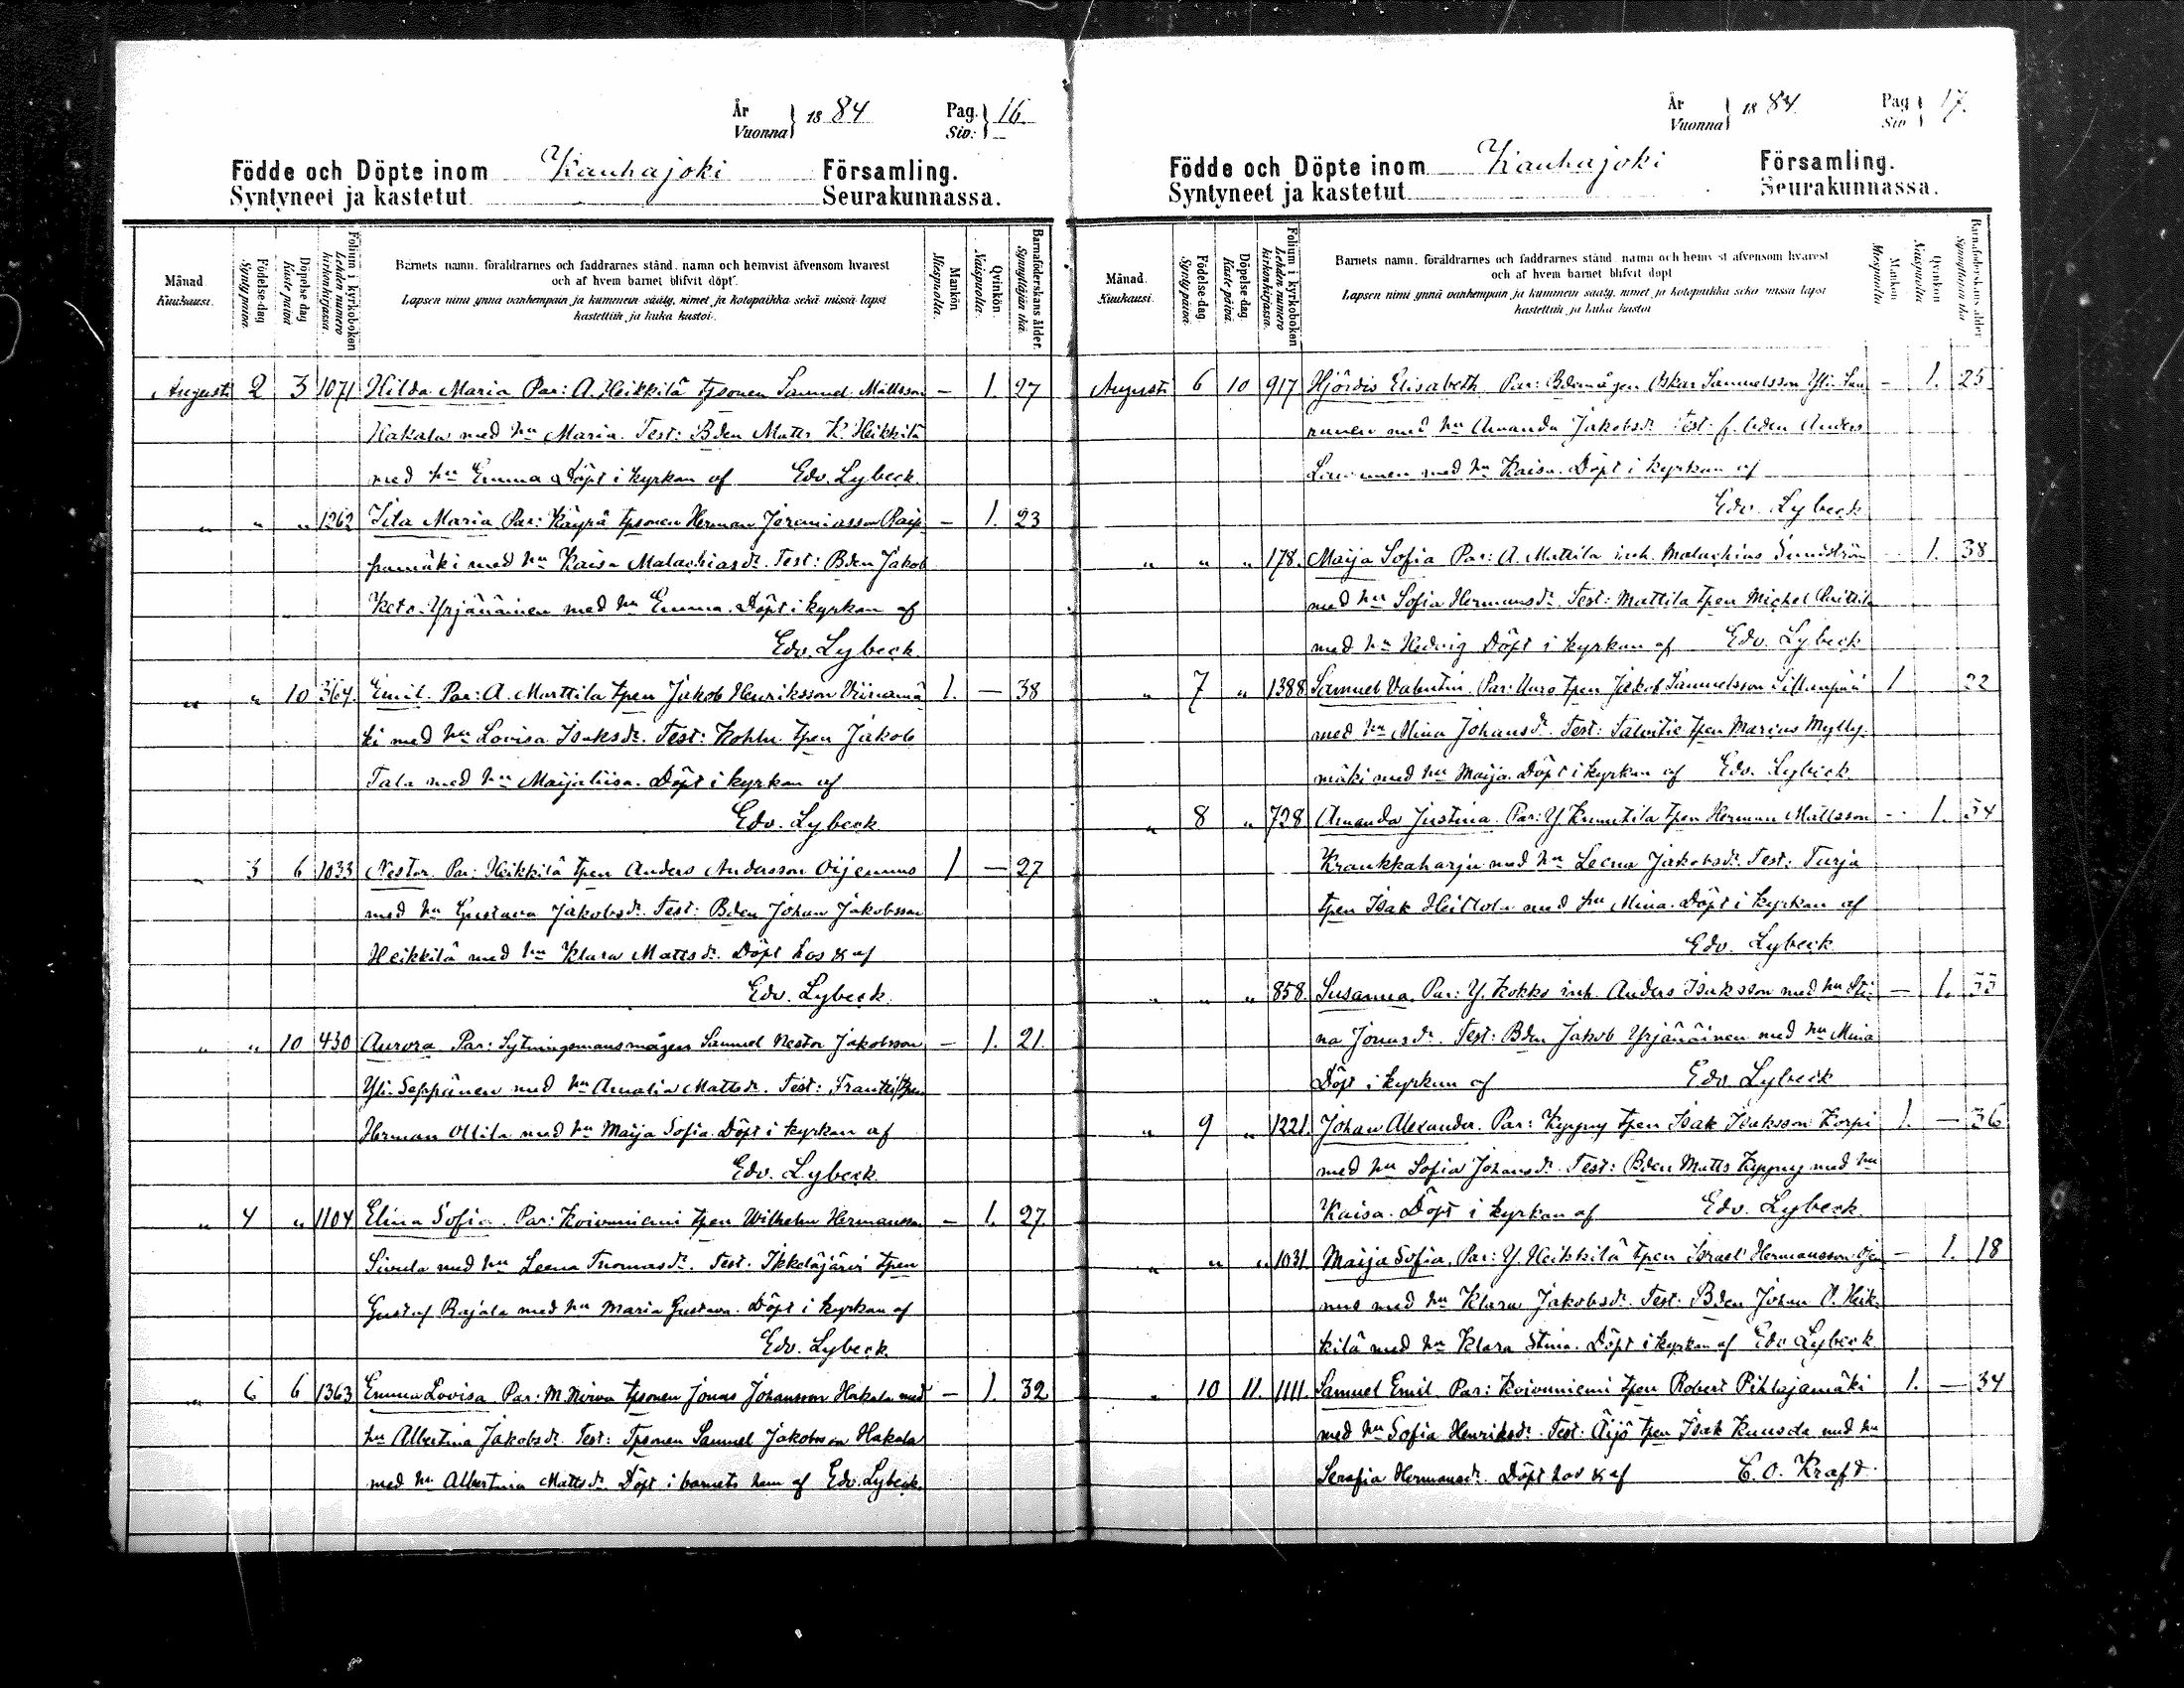 År Vuonna } 1884 Pag. Siv: } 16.
Födde och Döpte inom Kauhajoki Församling.
Syntyneet ja kastetut Seurakunnassa.
Månad Kuukausi.
Födelse-dag Synty päivä.
Döpelse dag Kaste päivä
Folium i kyrkoboken Lehden numero kirkonkirjassa.
Barnets namn, föräldrarnes och faddrarnes stånd, namn och hemvist äfvensom hvarest
och af hvem barnet blifvit döpt.
Lapsen nimi ynnä vanhempain ja kummein sääty, nimet ja kotopaikka sekä missä lapsi
kastettiin ja kuka kastoi.
Mankön Miespuolta.
Qvinkön. Naispuolta.
Barnaföderskans ålder. Synnyttäjän ikä.
Augusti 2 3 1071 Hilda Maria Par: A. Heikkilä tpsonen Samuel Mattsson — 1. 27
Hakala med hu Maria. Test: Bden Matts K. Heikkilä
med hu Emma Döpt i kyrkan af Edv. Lybeck.
" " " 1262 Iita Maria Par: Käyrä tpsonen Herman Jeremiasson — 1. 23
med hu Kaisa Malachiasdr. Test: Bden Jakob
Keto-Yrjänäinen med hu Emma. Döpt i kyrkan af
Edv. Lybeck.
" " 10 364. Emil. Par: A. Marttila tpen Jakob Henriksson Viinamä 1. — 38
ki med hu Lovisa Isaksdr. Test: tpen Jakob
Tala med hu Maijaliisa. Döpt i kyrkan af
Edv. Lybeck
" 3 6 1033 Nestor. Par: Heikkilä tpen Anders Andersson Oijennus 1 — 27
med hu Gustava Jakobsdr. Test: Bden Johan Jakobsson
Heikkilä med hu Klara Mattsdr. Döpt hos af
Edv. Lybeck.
" " 10 430 Aurora. Par: Sytningsmansmågen Samuel Nestor Jakobsson — 1. 21.
Yli-Seppänen med hu Amalia Mattsdr. Test: Frantti tpen
Herman Ollila med hu Maija Sofia. Döpt i kyrkan af
Edv. Lybeck.
" 4 " 1104 Elina Sofia. Par: Koivuniemi tpen Wilhelm Hermansson — 1. 27.
Sivula med hu Leena Thomasdr. Test. Ikkeläjärvi tpen
Gustaf Rajala med hu Maria Gustava. Döpt i kyrkan af
Edv. Lybeck.
" 6 6 1363 Emma Lovisa. Par: M. Nirva tpsonen Jonas Johansson Hakala med — 1. 32
hu Albertina Jakobsdr. Test: Tpsonen Samuel Jakobsson Hakala
med hu Albertina Mattsdr. Döpt i barnets hem af Edv. Lybeck.
År Vuonna } 1884. Pag Siv } 17.
Födde och Döpte inom Kauhajoki Församling.
Syntyneet ja kastetut Seurakunnassa.
Månad Kuukausi.
Födelse-dag Synty päivä
Döpelse dag. Kaste päivä
Folium i kyrkoboken Lehden numero kirkonkirjassa.
Barnets namn, föräldrarnes och faddrarnes stånd, namn och hemvist äfvensom hvarest
och af hvem barnet blifvit döpt
Lapsen nimi ynnä vanhempain ja kummein sääty, nimet ja kotopaikka sekä missä lapsi
kastettiin ja kuka kastoi
Mankön Miespuolta
Qvinkön Naispuolta
Barnaföderskans ålder Synnyttäjän ikä
Augusti 6 10 917 Hjördis Elisabeth. Par: Bdemågen Oskar Samuelsson Yli-Lau — 1. 25
runen med hu Amanda Jakobsdr Test. f. bden Anders
med hu Kaisa. Döpt i kyrkan af
Edv. Lybeck
" " " 178. Maija Sofia Par: A. Mattila inh. Malachias Sundström — 1. 38
med hu Sofia Hermansdr. Test: Mattila tpen Michel
med hu Hedvig Döpt i kyrkan af Edv. Lybeck
" 7 " 1388 Samuel Valentin. Par: tpen Jakob Samuelsson Sillanpää 1 22
med hu Mina Johansdr. Test: Salvitie tpen Marius Mylly-
mäki med hu Maija. Döpt i kyrkan af Edv. Lybeck
" 8 " 728 Amanda Justina. Par: Y. tpen Herman Mattsson — 1. 34
Kraukkaharju med hu Leena Jakobsdr. Test: Turja
tpen Isak med hu Mina. Döpt i kyrkan af
Edv. Lybeck
" " " 858. Susanna. Par: Y. Kokko inh. Anders Isaksson med hu Sti- — 1. 33
na Jonasdr. Test: Bden Jakob Yrjänäinen med hu Mina
Döpt i kyrkan af Edv. Lybeck
" 9 " 1221. Johan Alexander. Par: Kyyny tpen Isak Isaksson Korpi 1. — 36
med hu Sofia Johansdr. Test: Bden Matts Kyyny med hu
Kaisa. Döpt i kyrkan af Edv. Lybeck.
" " " 1031 Maija Sofia. Par: Y. Heikkilä tpen Israel Hermansson Ojen — 1. 18
nus med hu Klara Jakobsdr. Test: Bden Johan Heik-
kilä med hu Klara Stina. Döpt i kyrkan af Edv Lybeck
" 10 11. 1111. Samuel Emil. Par: Koivuniemi tpen Robert Pihlajamäki 1. — 34
med hu Sofia Henriksdr. Test. Äijö tpen Isak med hu
Serafia Hermansdr. Döpt hos af C. O. Kraft